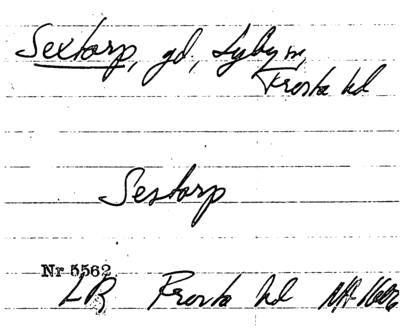 Sextorp, gd, Lyby sn,
Frosta hd
Sestorp
Nr 5562
LR Frosta hd